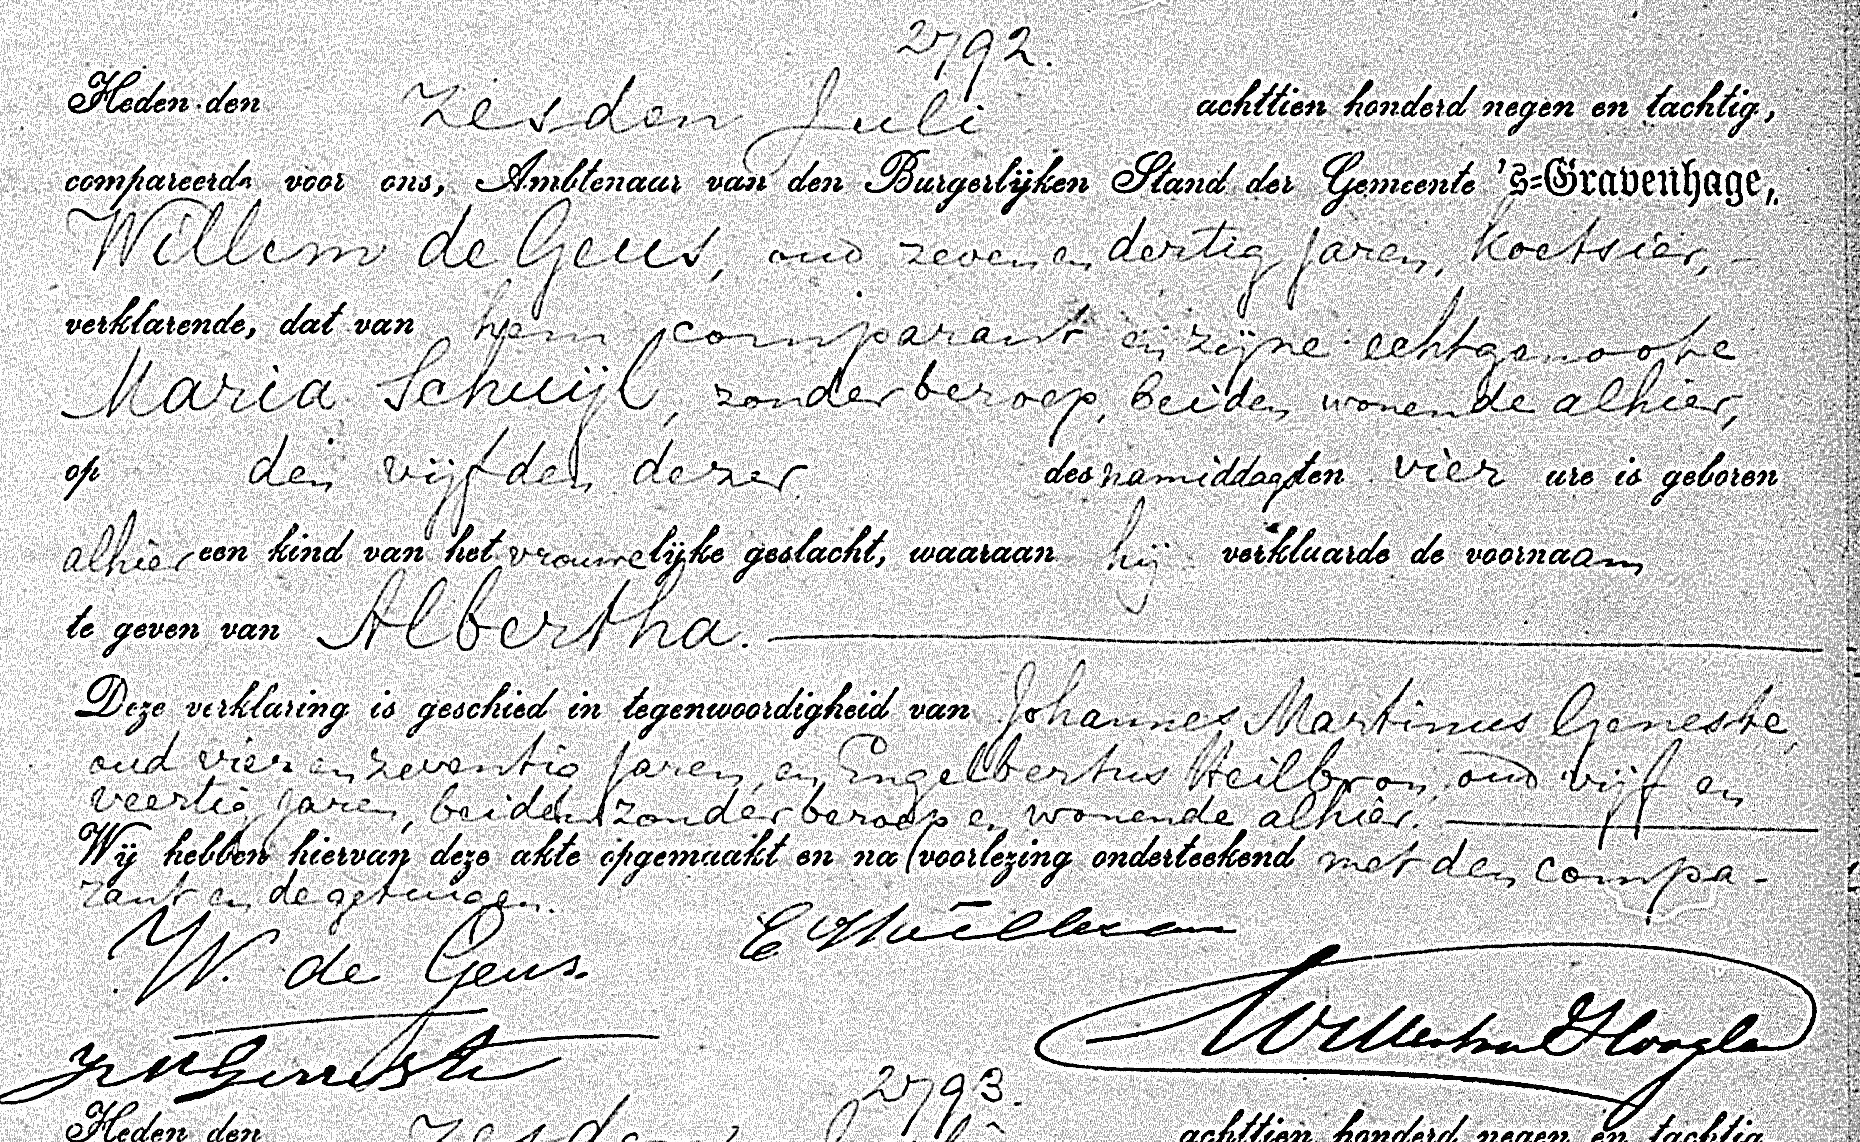 2792.
Heden den zesden Juli achttien honderd negen en tachtig,
compareerde voor ons, Ambtenaar van den Burgerlijken Stand der Gemeente 's=Gravenhage,
Willem de Geus, oud zeven en dertig jaren, koetsier,
verklarende, dat van hem comparant en zijne echtgenoote
Maria Schuijl, zonder beroep, beiden wonende alhier,
op den vijfden dezer des namiddags ten vier ure is geboren
alhier een kind van het vrouwelijke geslacht, waaraan hij verklaarde de voornaam
te geven van Albertha.
Deze verklaring is geschied in tegenwoordigheid van Johannes Martinus Geneste,
oud vier en zeventig jaren, en Engelbertus Heilbron, oud vijf en
veertig jaren, beiden zonder beroep en wonende alhier.
Wij hebben hiervan deze akte opgemaakt en na voorlezing onderteekend met den compa-
rant en de getuigen.
W. de Geus.
2793.
Heden den zesden Juli achttien honderd negen en tachtig